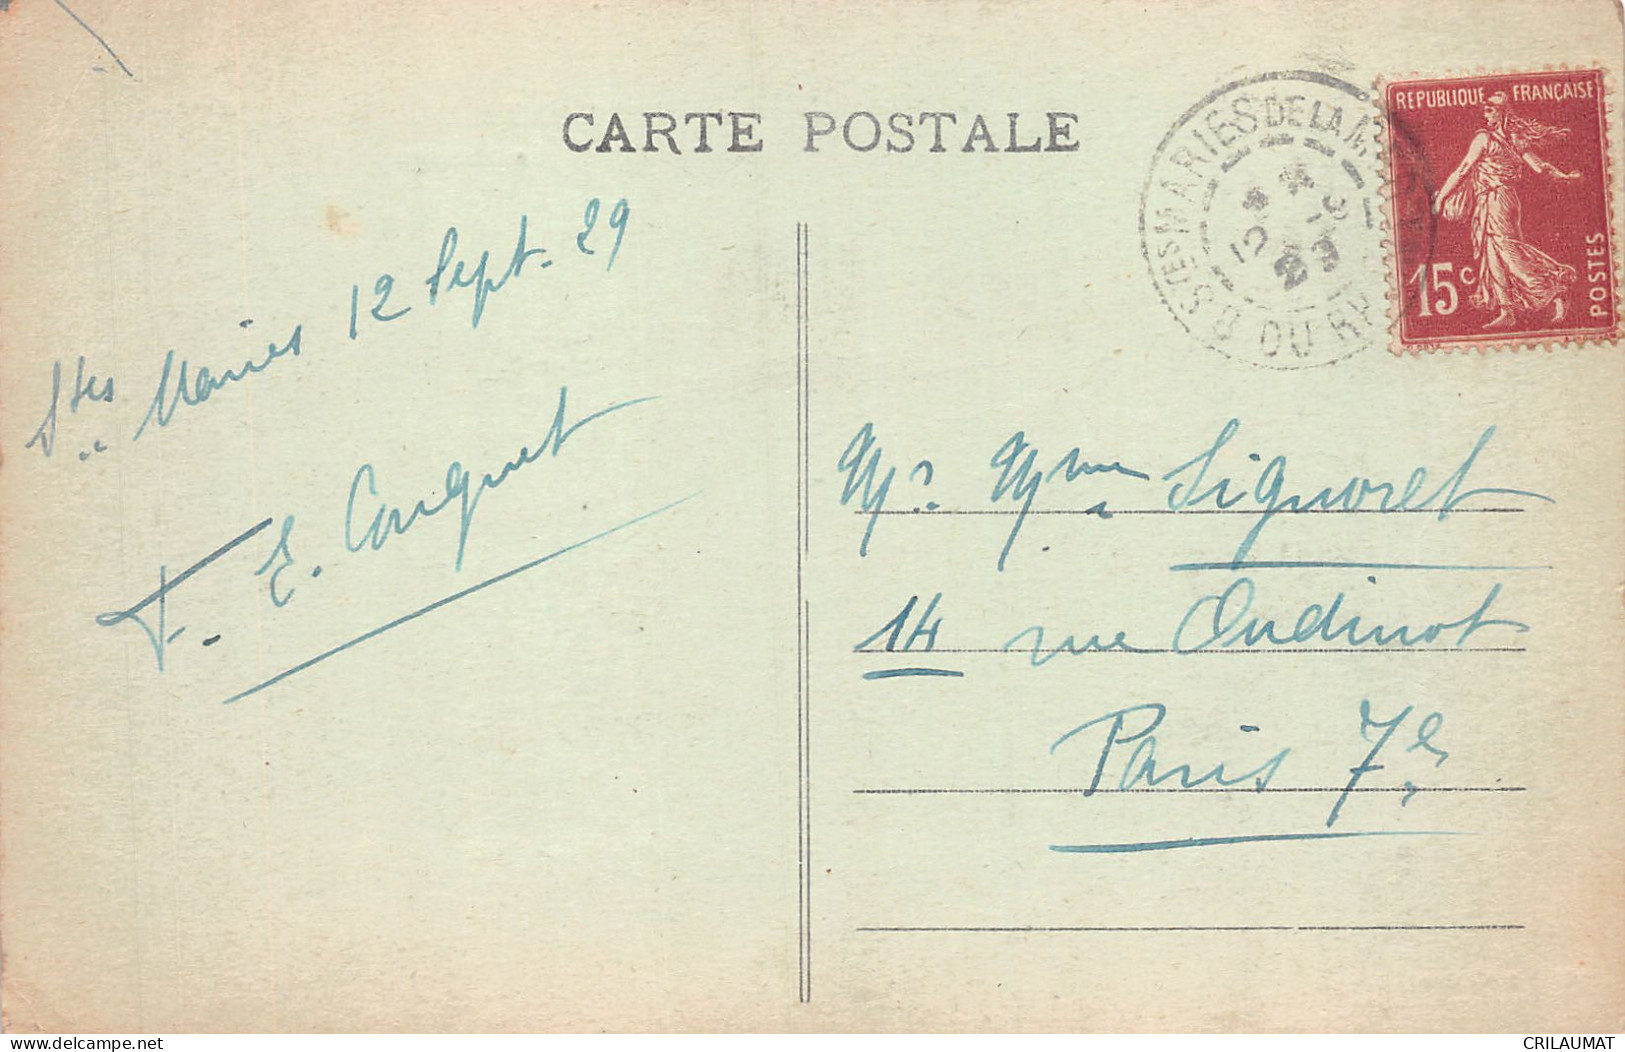 CARTE POSTALE
REPUBLIQUE FRANÇAISE
15c
POSTES
STES MARIES DE LA M
B DU RH
29
Stes Maries 12 Sept. 29
E. Conquet
Mr. Mme Signoret
14 rue Oudinot
Paris 7e
CRILAUMAT
www.delcampe.net